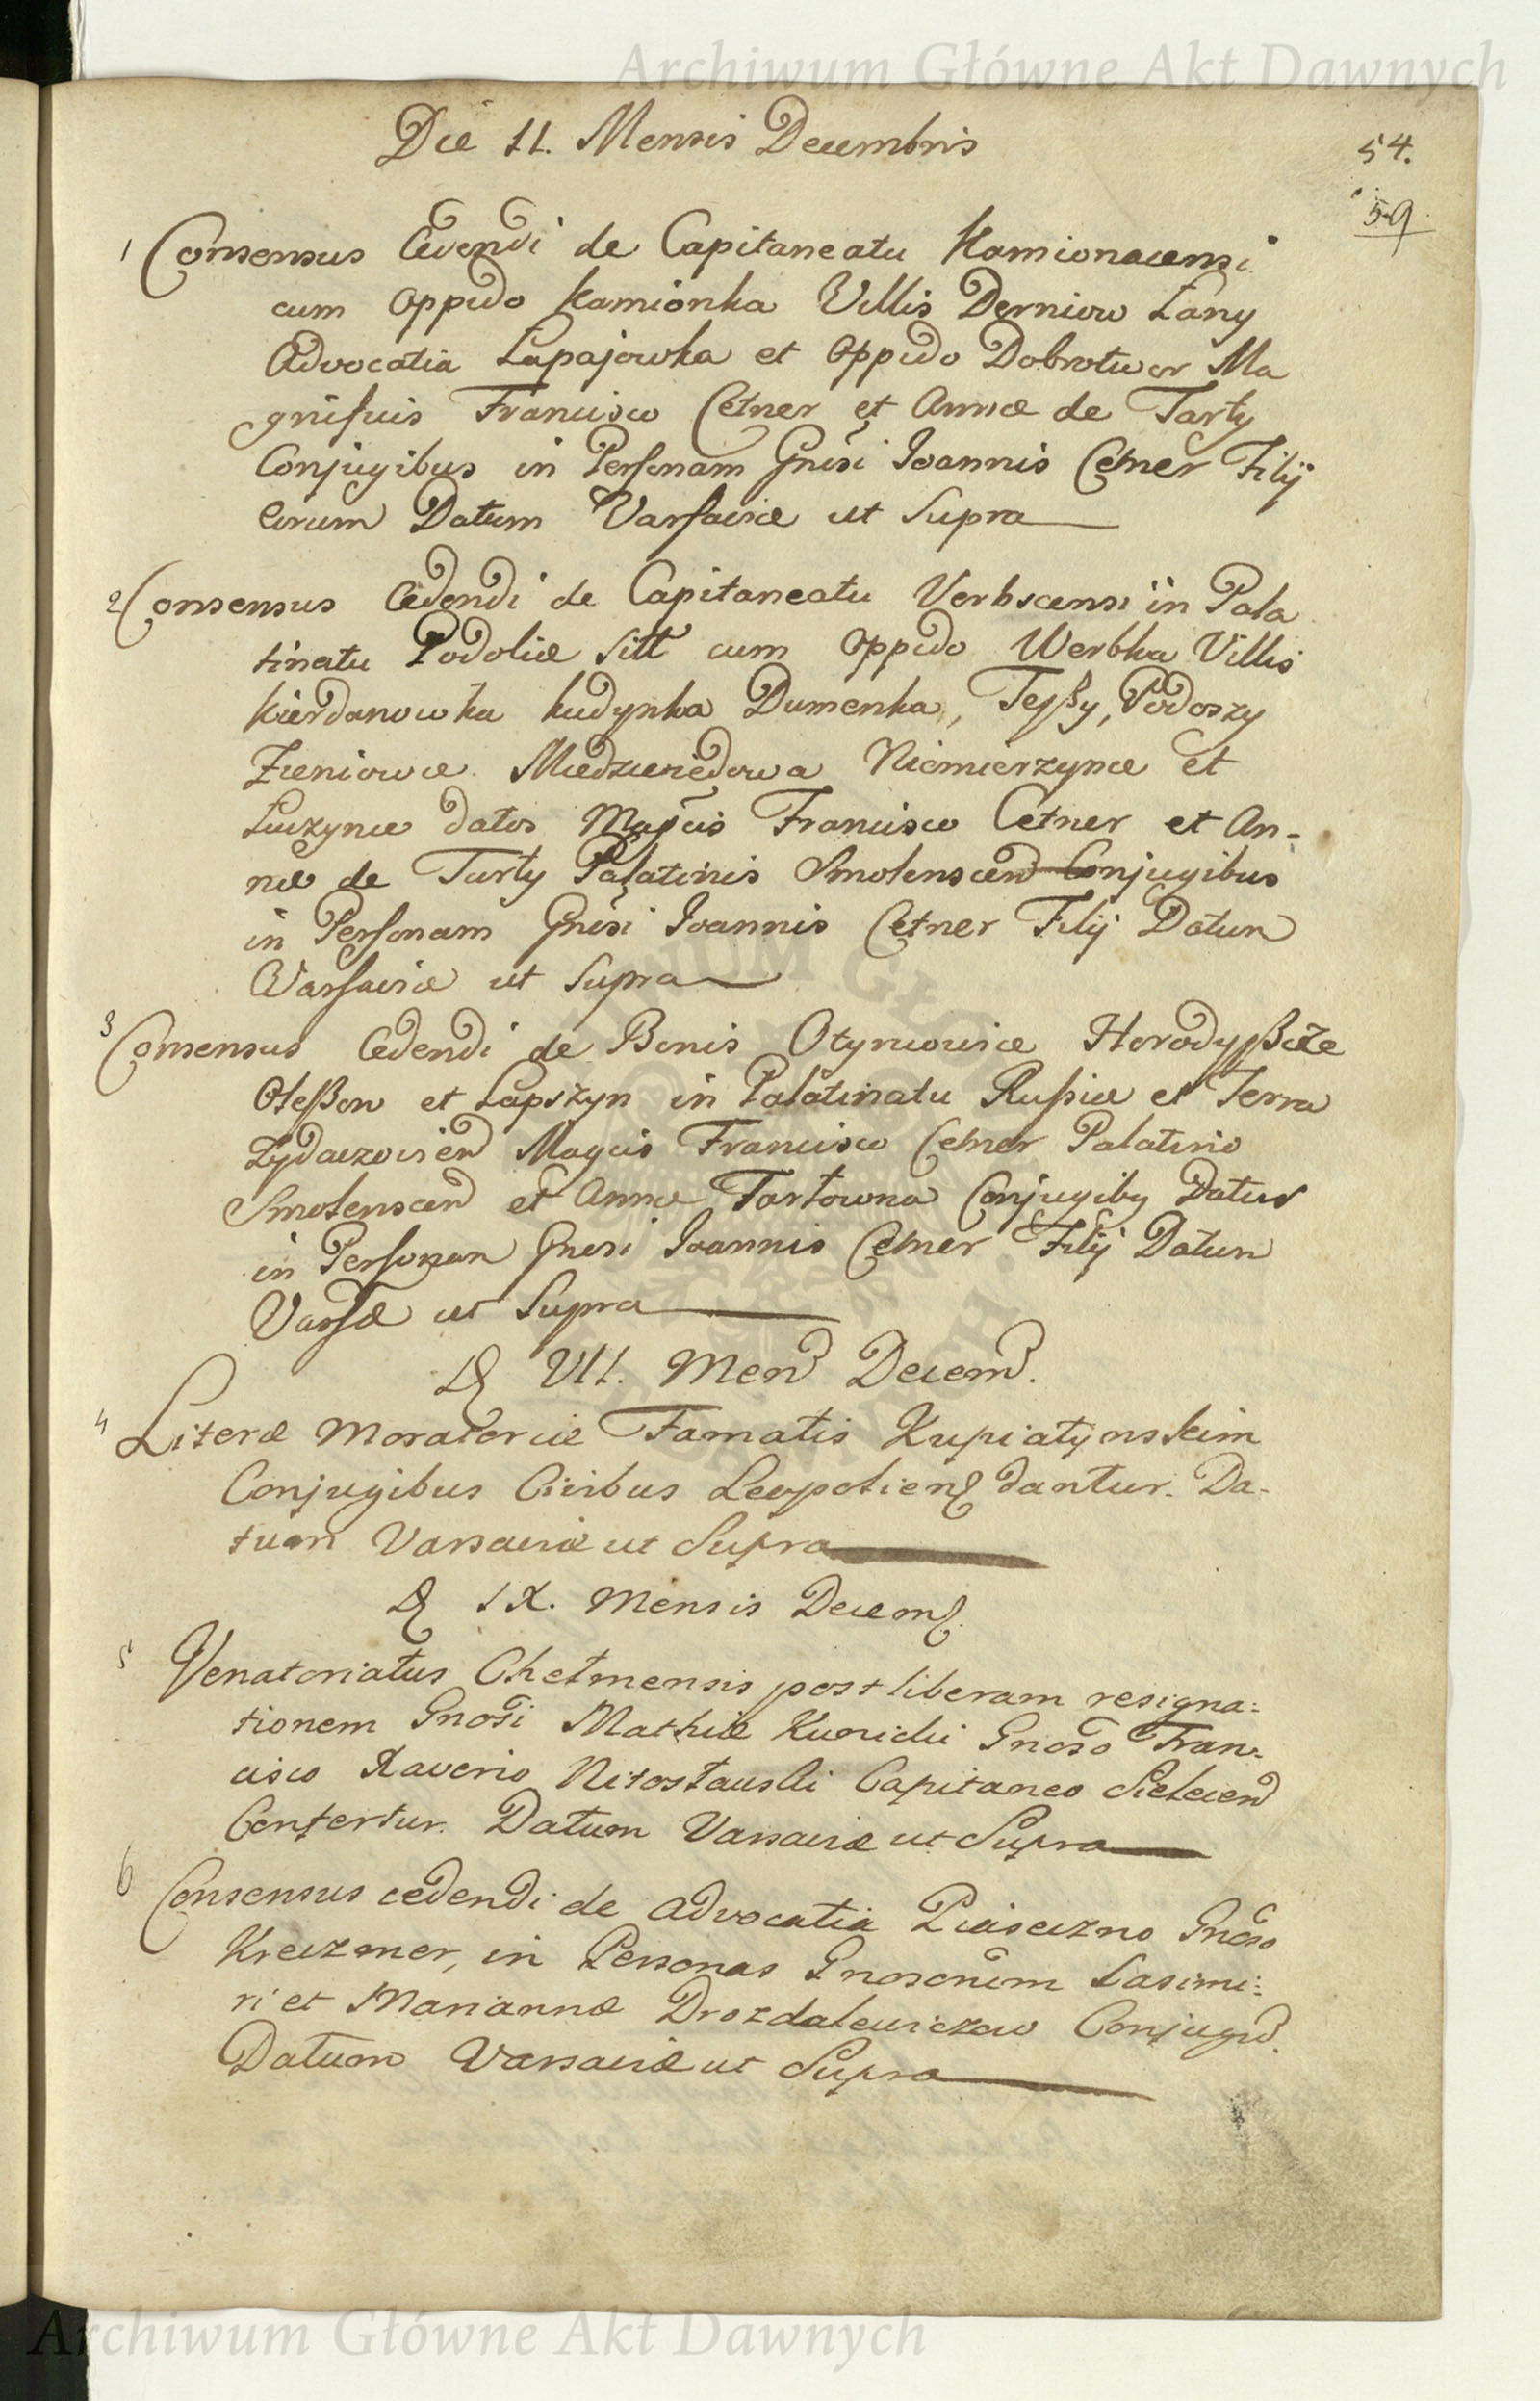 Archiwum Główne Akt Dawnych
Die 11. Mensis Decembris
54.
59
1 Consensus Cedendi de Capitaneatu Kamionacensi
cum Oppido Kamionka Villis Derniow Łany
Advocatia Łapajowka et Oppido Dobrotwor Ma
gnificis Francisco Cetner et Annæ de Tarły
Conjugibus in Personam Gnsi Joannis Cetner Filij
eorum Datum Varsaviæ ut Supra
2 Consensus Cedendi de Capitaneatu Verbscensi in Pala
tinatu Podoliæ sitt cum Oppido Werbka Villis
Kierdanowka Kudynka Dumenka, Teßy, Podoszy
Zieniowce Niemierzynce et
Łuczynce datos Magcis Francisco Cetner et An-
næ de Tarły Palatinis Smolenscen Conjugibus
in Personam Gnsi Joannis Cetner Filij Datum
Varsaviæ ut Supra
3 Consensus Cedendi de Bonis Otyniowice Horodyßcze
Oleßow et Łapszyn in Palatinatu Rußiæ et Terra
Zydaczovien Magcis Francisco Cetner Palatino
Smolenscen et Annæ Tarłowna Conjugiby Datus
in Personam Gnosi Joannis Cetner Filij Datum
Varsæ ut Supra
D VII. Men Decem.
4 Literæ Moratoriæ Famatis Kupiatynskim
Conjugibus Civibus Leopolien dantur. Da-
tum Varsaviæ ut Supra
D IX. Mensis Decem.
5 Venatoriatus Chełmensis post liberam resigna:
tionem Gnosi Mathiæ Kunicki Gnoso Fran-
cisco Xaverio Nitosławski Capitaneo
Confertur. Datum Varsaviæ ut Supra
6 Consensus cedendi de Advocatia Piaseczno Gnoso
Kreczmer, in Personas Gnosorum Casimi:
ri et Mariannæ Drozdalewiczow Conjugu.
Datum Varsaviæ ut Supra
Archiwum Główne Akt Dawnych